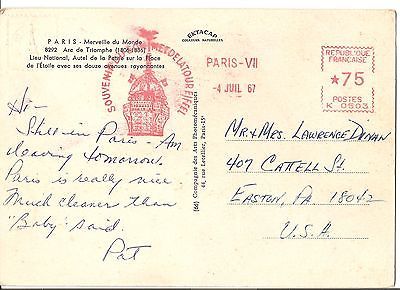 PARIS - Merveille du Monde
8292 Arc de Triomphe (1806-1836)
Lieu National, Autel de la Patrie sur la Place
de l'Étoile avec ses douze avenues rayonnantes
EKTACAP
COULEURS NATURELLES
SOUVENIR DU SOMMET DE LA TOUR EIFFEL
PARIS-VII
-4 JUIL 67
REPUBLIQUE
FRANÇAISE
★75
POSTES
K 0503
Hi-
Still in Paris - Am
leaving tomorrow.
Paris is really nice.
Much cleaner than
"Baby" said.
Pat
(66) Compagnie des Arts Photomécaniques
44, rue Letellier, Paris-15e
Mr & Mrs. Lawrence
407 Cattell St.
Easton, PA 18042
U.S.A.